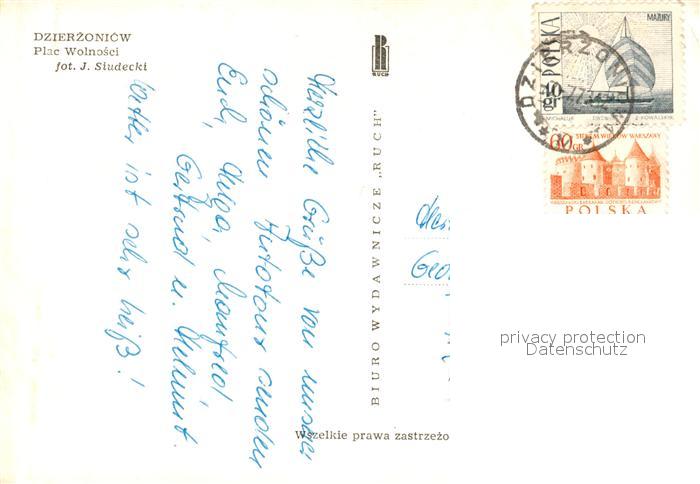 DZIERŻONIÓW
Plac Wolności
fot. J. Siudecki
RUCH
BIURO WYDAWNICZE „RUCH"
Wszelkie prawa zastrzeżo
Herzliche Grüße von unserer
schönen Autotour senden
Euch, Helga, Manfred
Gertrud u. Helmut.
Wetter ist sehr heiß!
Geo
POLSKA
MAZURY
40 gr
DZIERŻONI
60 GR
SIEDEM WIEKÓW WARSZAWY
POLSKA
privacy protection
Datenschutz